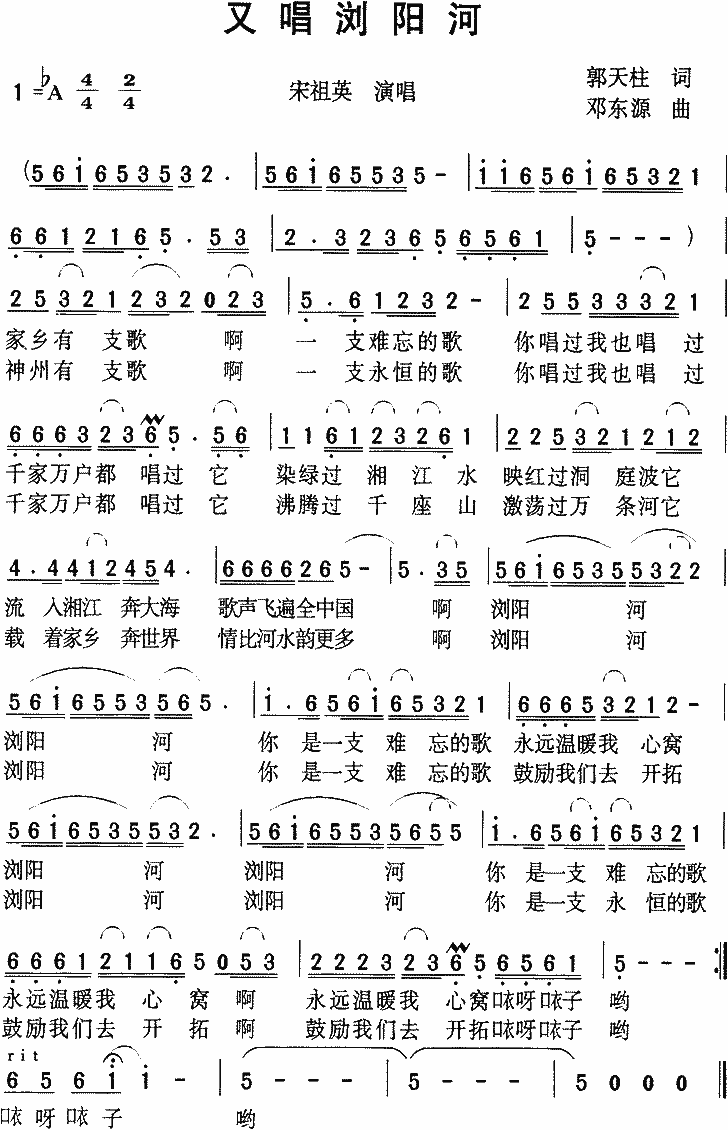 又唱浏阳河
1=♭A 4/4 2/4 宋祖英 演唱 郭天柱 词
邓东源 曲
(5 6 i 6 5 3 5 3 2 . | 5 6 i 6 5 5 3 5 - | i i 6 5 6 i 6 5 3 2 1 |
6 6 1 2 1 6 5 . 5 3 | 2 . 3 2 3 6 5 6 5 6 1 | 5 - - - ) |
2 5 3 2 1 2 3 2 0 2 3 | 5 . 6 1 2 3 2 - | 2 5 5 3 3 3 2 1 |
家乡有 支歌 啊 一 支难忘的歌 你唱过我也唱 过
神州有 支歌 啊 一 支永恒的歌 你唱过我也唱 过
6 6 6 3 2 3 6 5 . 5 6 | 1 1 6 1 2 3 2 6 1 | 2 2 5 3 2 1 2 1 2 |
千家万户都 唱过 它 染绿过 湘 江 水 映红过洞 庭波它
千家万户都 唱过 它 沸腾过 千 座 山 激荡过万 条河它
4 . 4 4 1 2 4 5 4 . | 6 6 6 6 2 6 5 - | 5 . 3 5 | 5 6 i 6 5 3 5 5 3 2 2 |
流 入湘江 奔大海 歌声飞遍全中国 啊 浏阳 河
载 着家乡 奔世界 情比河水韵更多 啊 浏阳 河
5 6 i 6 5 5 3 5 6 5 . | i . 6 5 6 i 6 5 3 2 1 | 6 6 6 5 3 2 1 2 - |
浏阳 河 你 是一支 难 忘的歌 永远温暖我 心窝
浏阳 河 你 是一支 难 忘的歌 鼓励我们去 开拓
5 6 i 6 5 3 5 5 3 2 . | 5 6 i 6 5 5 3 5 6 5 5 | i . 6 5 6 i 6 5 3 2 1 |
浏阳 河 浏阳 河 你 是一支 难 忘的歌
浏阳 河 浏阳 河 你 是一支 永 恒的歌
6 6 6 1 2 1 1 6 5 0 5 3 | 2 2 2 3 2 3 6 5 6 5 6 1 | 5 - - :|
永远温暖我 心 窝 啊 永远温暖我 心窝咴呀咴子 哟
鼓励我们去 开 拓 啊 鼓励我们去 开拓咴呀咴子 哟
rit
6 5 6 i i - | 5 - - - | 5 - - - | 5 0 0 0 ||
咴 呀 咴 子 哟